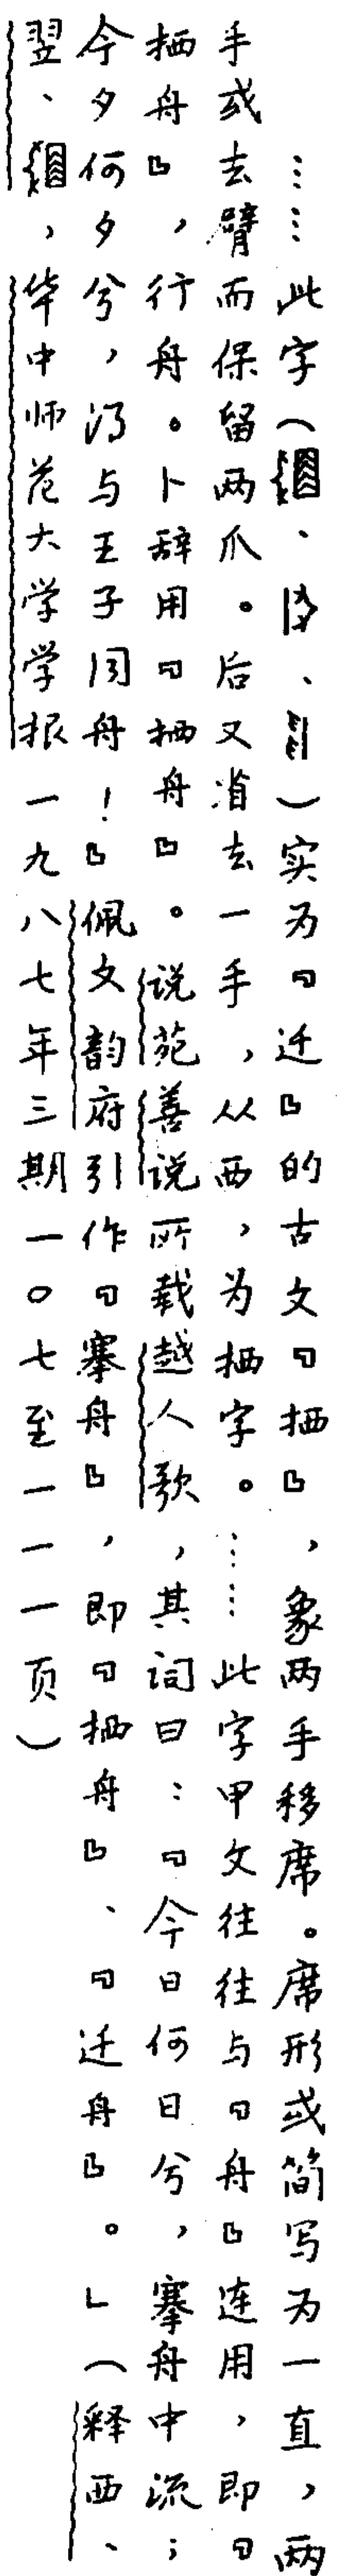 ……此字（、、）实为『迁』的古文『拪』，象两手移席。席形或简写为一直，两
手或去臂而保留两爪。后又省去一手，从西，为拪字。……此字甲文往往与『舟』连用，即『
拪舟』，行舟。卜辞用『拪舟』。说苑善说所载越人歌，其词曰：『今日何日兮，搴舟中流；
今夕何夕兮，得与王子同舟！』佩文韵府引作『搴舟』，即『拪舟』、『迁舟』。」（释西、
翌、，华中师范大学学报一九八七年三期一〇七至一一一页）